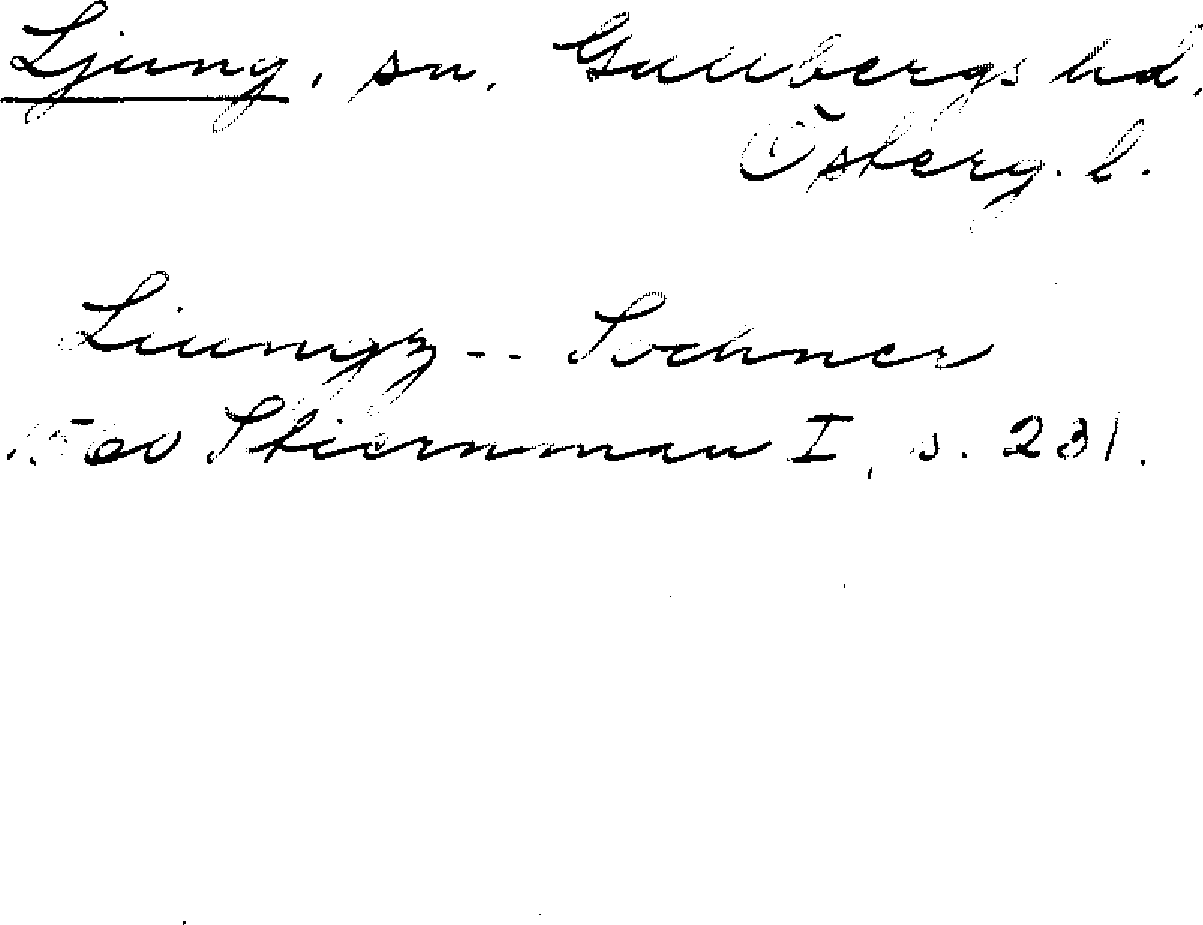 Ljung, sn. Gullbergs hd.
Österg. l.
Liungz -- Sochner
1560 Stiernman I, s. 231.